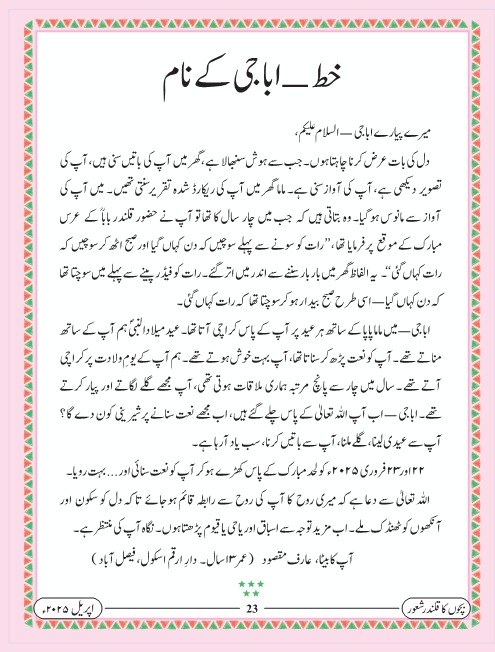 خط — اباجی کے نام
میرے پیارے اباجی — السلام علیکم،
دل کی بات عرض کرنا چاہتا ہوں۔ جب سے ہوش سنبھالا ہے، گھر میں آپ کی باتیں سنی ہیں، آپ کی
تصویر دیکھی ہے، آپ کی آواز سنی ہے۔ ماما گھر میں آپ کی ریکارڈ شدہ تقریر سنتی تھیں۔ میں آپ کی
آواز سے مانوس ہو گیا۔ وہ بتاتی ہیں کہ جب میں چار سال کا تھا تو آپ نے حضور قلندر باباؒ کے عرس
مبارک کے موقع پر فرمایا تھا، ”رات کو سونے سے پہلے سوچیں کہ دن کہاں گیا اور صبح اٹھ کر سوچیں کہ
رات کہاں گئی“۔ یہ الفاظ گھر میں بار بار سننے سے اندر میں اتر گئے۔ رات کو فیڈر پینے سے پہلے میں سوچتا تھا
کہ دن کہاں گیا — اسی طرح صبح بیدار ہو کر سوچتا تھا کہ رات کہاں گئی۔
اباجی — میں ماما پاپا کے ساتھ ہر عید پر آپ کے پاس کراچی آتا تھا۔ عید میلاد النبیؐ ہم آپ کے ساتھ
مناتے تھے۔ آپ کو نعت پڑھ کر سناتا تھا، آپ بہت خوش ہوتے تھے۔ ہم آپ کے یوم ولادت پر کراچی
آتے تھے۔ سال میں چار سے پانچ مرتبہ ہماری ملاقات ہوتی تھی، آپ مجھے گلے لگاتے اور پیار کرتے
تھے۔ اباجی — اب آپ اللہ تعالیٰ کے پاس چلے گئے ہیں، اب مجھے نعت سنانے پر شیرینی کون دے گا؟
آپ سے عیدی لینا، گلے ملنا، آپ سے باتیں کرنا، سب یاد آ رہا ہے۔
۲۲ اور ۲۳ فروری ۲۰۲۵ء کو لحد مبارک کے پاس کھڑے ہو کر آپ کو نعت سنائی اور... بہت رویا۔
اللہ تعالیٰ سے دعا ہے کہ میری روح کا آپ کی روح سے رابطہ قائم ہو جائے تاکہ دل کو سکون اور
آنکھوں کو ٹھنڈک ملے۔ اب مزید توجہ سے اسباق اور یا حی یا قیوم پڑھتا ہوں۔ نگاہ آپ کی منتظر ہے۔
آپ کا بیٹا، عارف مقصود (عمر ۱۳ سال۔ دار ارقم اسکول، فیصل آباد)
بچوں کا قلندر شعور
23
اپریل ۲۰۲۵ء